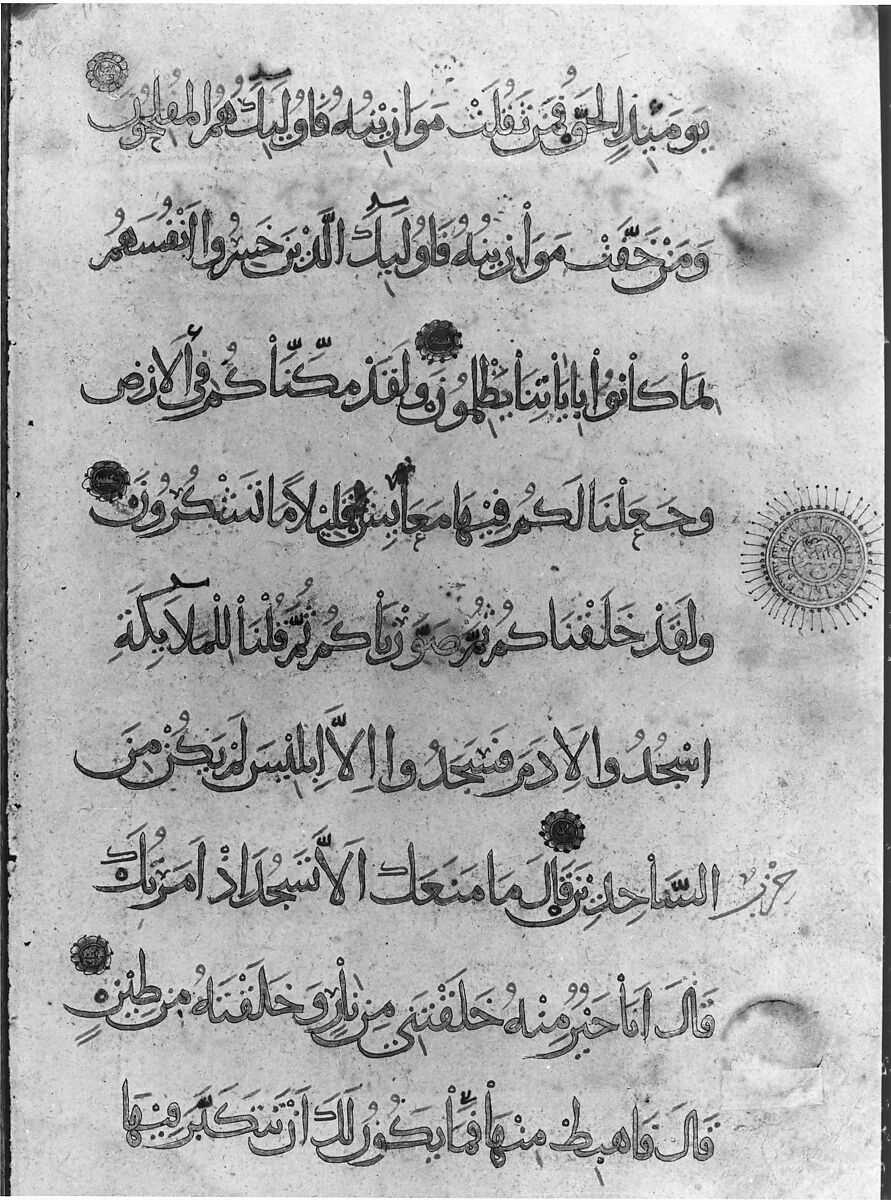 يَوْمَئِذٍ الْحَقُّ فَمَنْ ثَقُلَتْ مَوَازِينُهُ فَأُولَئِكَ هُمُ الْمُفْلِحُونَ
وَمَنْ خَفَّتْ مَوَازِينُهُ فَأُولَئِكَ الَّذِينَ خَسِرُوا أَنْفُسَهُمْ
بِمَا كَانُوا بِآيَاتِنَا يَظْلِمُونَ وَلَقَدْ مَكَّنَّاكُمْ فِي الْأَرْضِ
وَجَعَلْنَا لَكُمْ فِيهَا مَعَايِشَ قَلِيلًا مَا تَشْكُرُونَ
وَلَقَدْ خَلَقْنَاكُمْ ثُمَّ صَوَّرْنَاكُمْ ثُمَّ قُلْنَا لِلْمَلَائِكَةِ
اسْجُدُوا لِآدَمَ فَسَجَدُوا إِلَّا إِبْلِيسَ لَمْ يَكُنْ مِنَ
السَّاجِدِينَ قَالَ مَا مَنَعَكَ أَلَّا تَسْجُدَ إِذْ أَمَرْتُكَ
حزب
قَالَ أَنَا خَيْرٌ مِنْهُ خَلَقْتَنِي مِنْ نَارٍ وَخَلَقْتَهُ مِنْ طِينٍ
قَالَ فَاهْبِطْ مِنْهَا فَمَا يَكُونُ لَكَ أَنْ تَتَكَبَّرَ فِيهَا